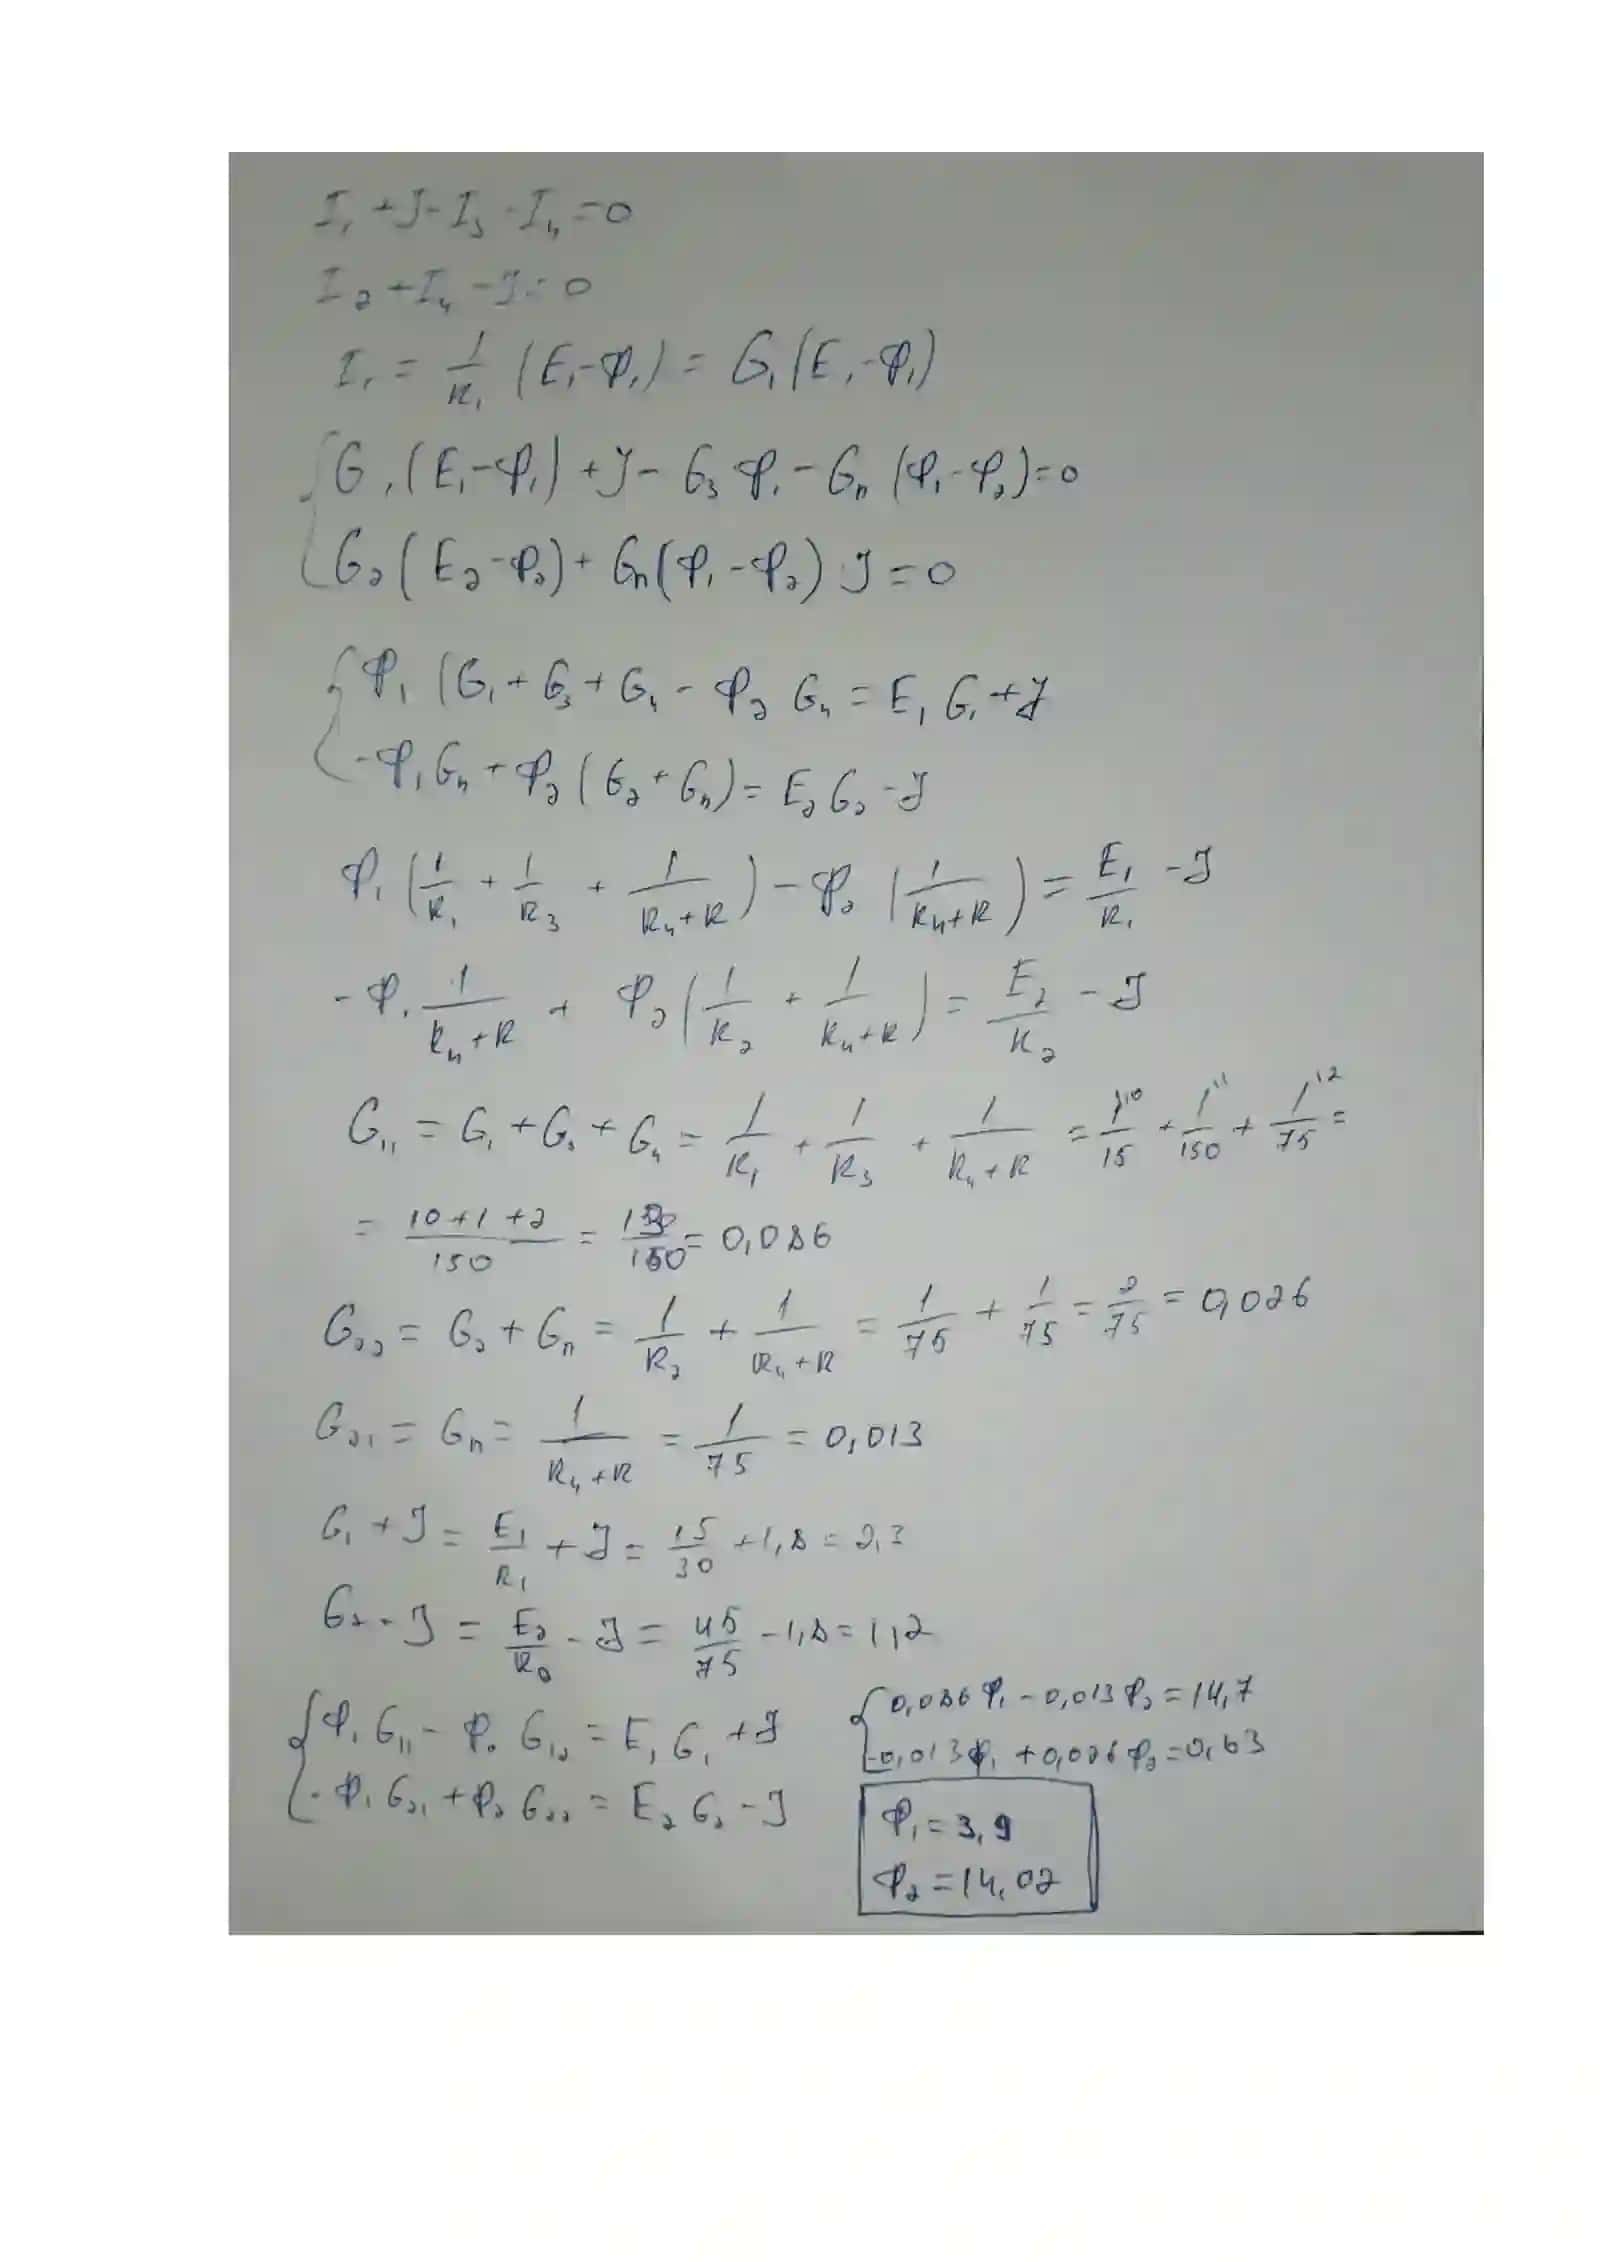 I₁ + J - I₃ - I₄ = 0
I₂ + I₄ - J = 0
I₁ = 1/R₁ (E₁ - φ₁) = G₁(E₁ - φ₁)
{ G₁(E₁ - φ₁) + J - G₃ φ₁ - G₄ (φ₁ - φ₂) = 0
G₂(E₂ - φ₂) + G₄(φ₁ - φ₂) J = 0
{ φ₁ (G₁ + G₃ + G₄ - φ₂ G₄ = E₁ G₁ + J
-φ₁G₄ + φ₂(G₂ + G₄) = E₂G₂ - J
φ₁ (1/R₁ + 1/R₃ + 1/(R₄+R)) - φ₂ (1/(R₄+R)) = E₁/R₁ - J
-φ₁ 1/(R₄+R) + φ₂ (1/R₂ + 1/(R₄+R)) = E₂/R₂ - J
G₁₁ = G₁ + G₃ + G₄ = 1/R₁ + 1/R₃ + 1/(R₄+R) = 1\10/15 + 1\1/150 + 1\2/75 =
= (10+1+2)/150 = 13/150 = 0,086
G₂₂ = G₂ + G₄ = 1/R₂ + 1/(R₄+R) = 1/75 + 1/75 = 2/75 = 0,026
G₂₁ = G₄ = 1/(R₄+R) = 1/75 = 0,013
G₁ + J = E₁/R₁ + J = 15/30 + 1,8 = 2,3
G₂ - J = E₂/R₂ - J = 45/75 - 1,8 = 1,2
{ φ₁ G₁₁ - φ₂ G₁₂ = E₁ G₁ + J
-φ₁ G₂₁ + φ₂ G₂₂ = E₂ G₂ - J
{ 0,086 φ₁ - 0,013 φ₂ = 14,7
-0,013 φ₁ + 0,026 φ₂ = 0,63
φ₁ = 3,9
φ₂ = 14,02